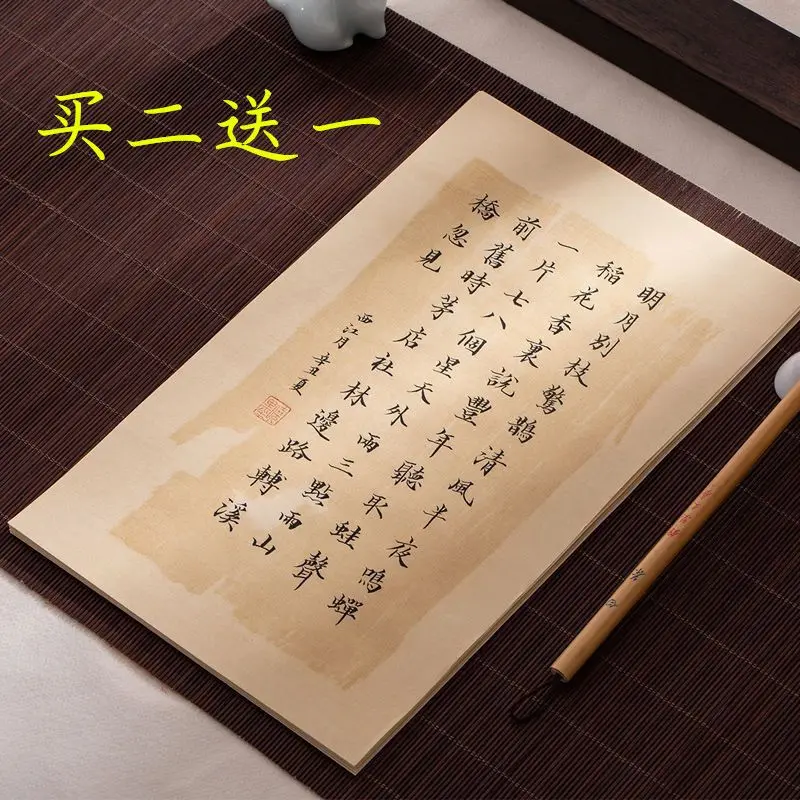 买二送一
明月別枝驚鵲清風半夜鳴蟬
稻花香裏說豐年聽取蛙聲
一片七八個星天外兩三點雨山
前舊時茅店社林邊路轉溪
橋忽見
西江月 辛丑夏